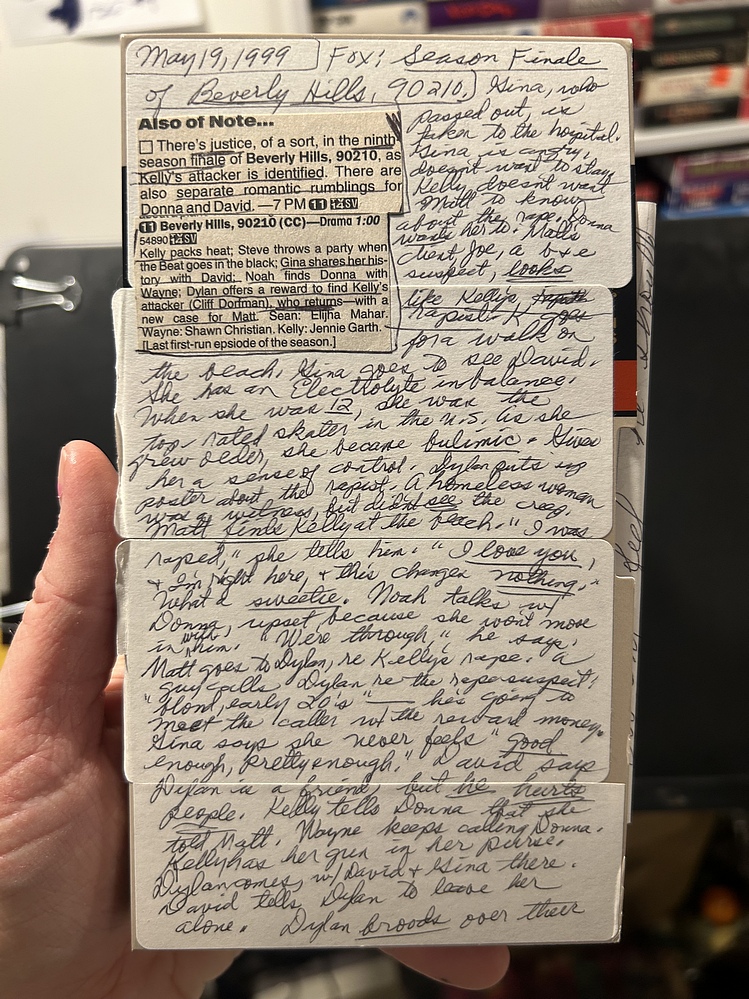 May 19, 1999 Fox: Season Finale
of Beverly Hills, 90210.) Gina, who
passed out, is
taken to the hospital.
Gina is angry,
doesn't want to stay.
Kelly doesn't want
Matt to know
about the rape. Donna
wants her to. Matt's
client, Joe, a b + e
suspect, looks
Also of Note...
There's justice, of a sort, in the ninth
season finale of Beverly Hills, 90210, as
Kelly's attacker is identified. There are
also separate romantic rumblings for
Donna and David. —7 PM 11
11 Beverly Hills, 90210 (CC)—Drama 1:00
54890
Kelly packs heat; Steve throws a party when
the Beat goes in the black; Gina shares her his-
tory with David; Noah finds Donna with
Wayne; Dylan offers a reward to find Kelly's
attacker (Cliff Dorfman), who returns—with a
new case for Matt. Sean: Elijha Mahar.
Wayne: Shawn Christian. Kelly: Jennie Garth.
[Last first-run epsiode of the season.]
like Kelly's
rapist. K goes
for a walk on
the beach. Gina goes to see David.
She has an Electrolyte inbalance.
When she was 12, she was the
top rated skater in the U.S. As she
grew older, she became bulimic. Gives
her a sense of control. Dylan puts up
poster about the rapist. A homeless woman
was a witness, but didn't see the creep.
Matt finds Kelly at the beach. "I was
raped," she tells him. "I love you,
+ I'm right here, + this changes nothing."
What a sweetie. Noah talks w/
Donna, upset because she won't move
in with him. "We're through," he says.
Matt goes to Dylan, re Kelly's rape. A
guy calls Dylan re the rape suspect:
"blond, early 20's" — he's going to
meet the caller w/ the reward money.
Gina says she never feels "good
enough, pretty enough." David says
Dylan is a friend, but he hurts
people. Kelly tells Donna that she
told Matt. Wayne keeps calling Donna.
Kelly has her gun in her purse.
Dylan comes, w/ David + Gina there.
David tells Dylan to leave her
alone. Dylan broods over their